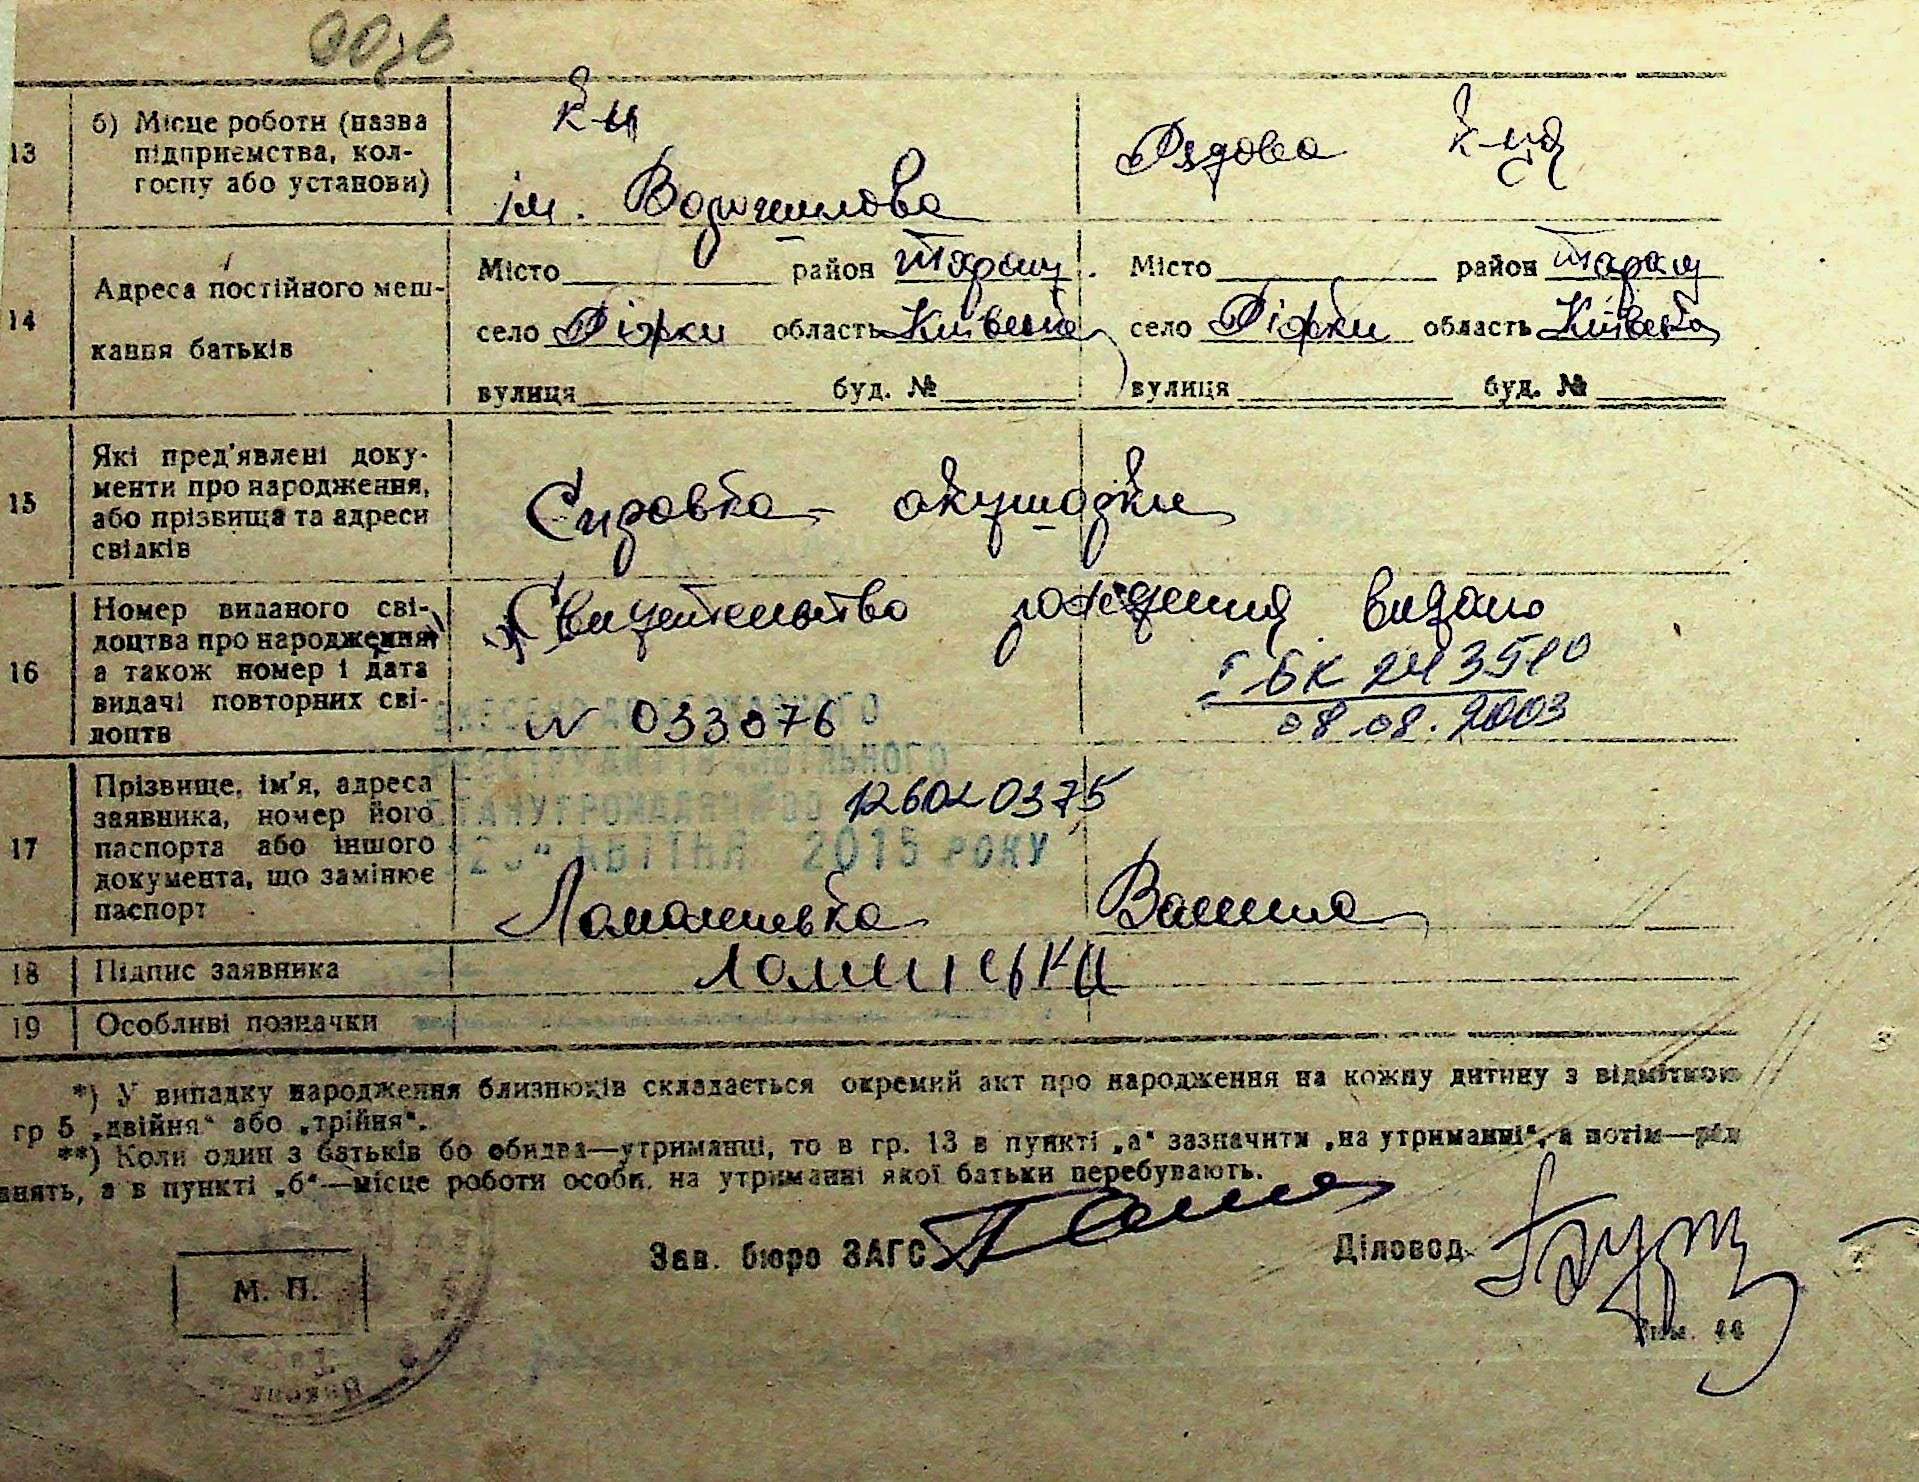 13
б) Місце роботи (назва
підприємства, кол-
госпу або установи)
к-п
ім. Ворошилова
Рядова к-ця
14
Адреса постійного меш-
кання батьків
Місто район Таращ.
село Ріжки область Київська
вулиця буд. №
Місто район Таращ
село Ріжки область Київська
вулиця буд. №
15
Які пред'явлені доку-
менти про народження,
або прізвища та адреси
свідків
Справка акушорки
16
Номер виданого сві-
доцтва про народження
а також номер і дата
видачі повторних сві-
доцтв
Свидетельство рождения видано
І БК 243510
№ 033076
08.08.2003
ВНЕСЕНО ДО ДЕРЖАВНОГО
РЕЄСТРУ АКТІВ ЦИВІЛЬНОГО
СТАНУ ГРОМАДЯН
КВІТНЯ 2015 РОКУ
17
Прізвище, ім'я, адреса
заявника, номер його
паспорта або іншого
документа, що замінює
паспорт
126020375
Ломаниська
18
Підпис заявника
19
Особливі позначки
*) У випадку народження близнюків складається окремий акт про народження на кожну дитину з відміткою
гр 5 „двійня“ або „трійня“.
**) Коли один з батьків бо обидва—утриманці, то в гр. 13 в пункті „а“ зазначити „на утриманні“, а потім—рід
анять, а в пункті „б“—місце роботи особи, на утриманні якої батьки перебувають.
Зав. бюро ЗАГС
Діловод
М. П.